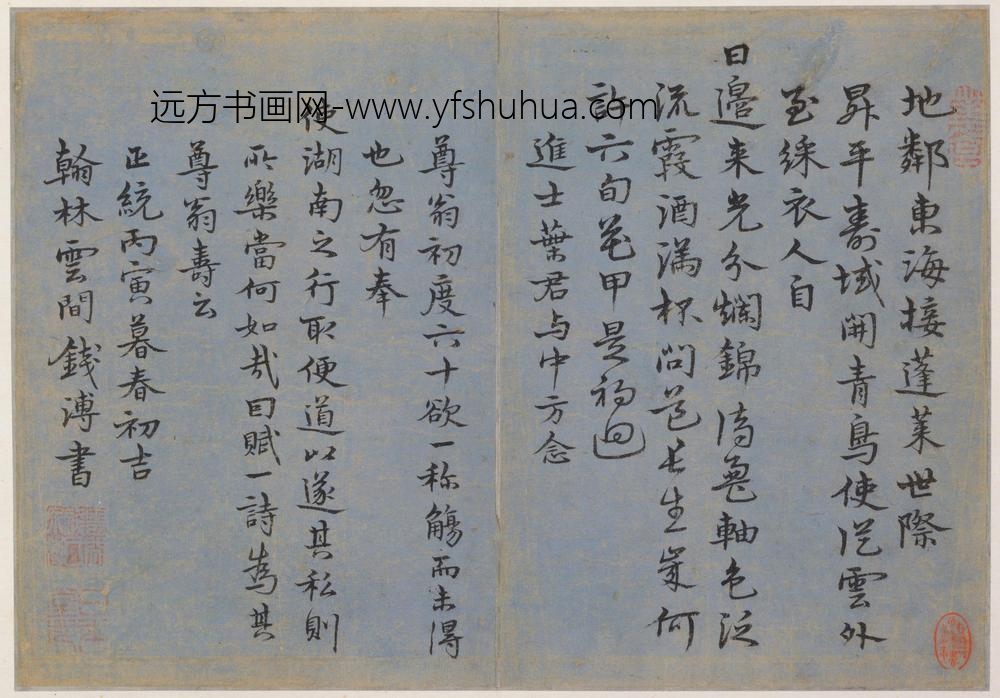 地鄰東海接蓬萊世際
昇平壽域開青鳥使從雲外
至綵衣人自
日邉来光分爛錦
軸色泛
流霞酒滿杯問道長生歲何
許六旬花甲是初迴
進士葉君与中方念
尊翁初度六十欲一称觴而未得
也忽有奉
使湖南之行取便道以遂其私則
所樂當何如哉因賦一詩為其
尊翁壽云
正統丙寅暮春初吉
翰林雲間錢溥書
远方书画网-www.yfshuhua.com